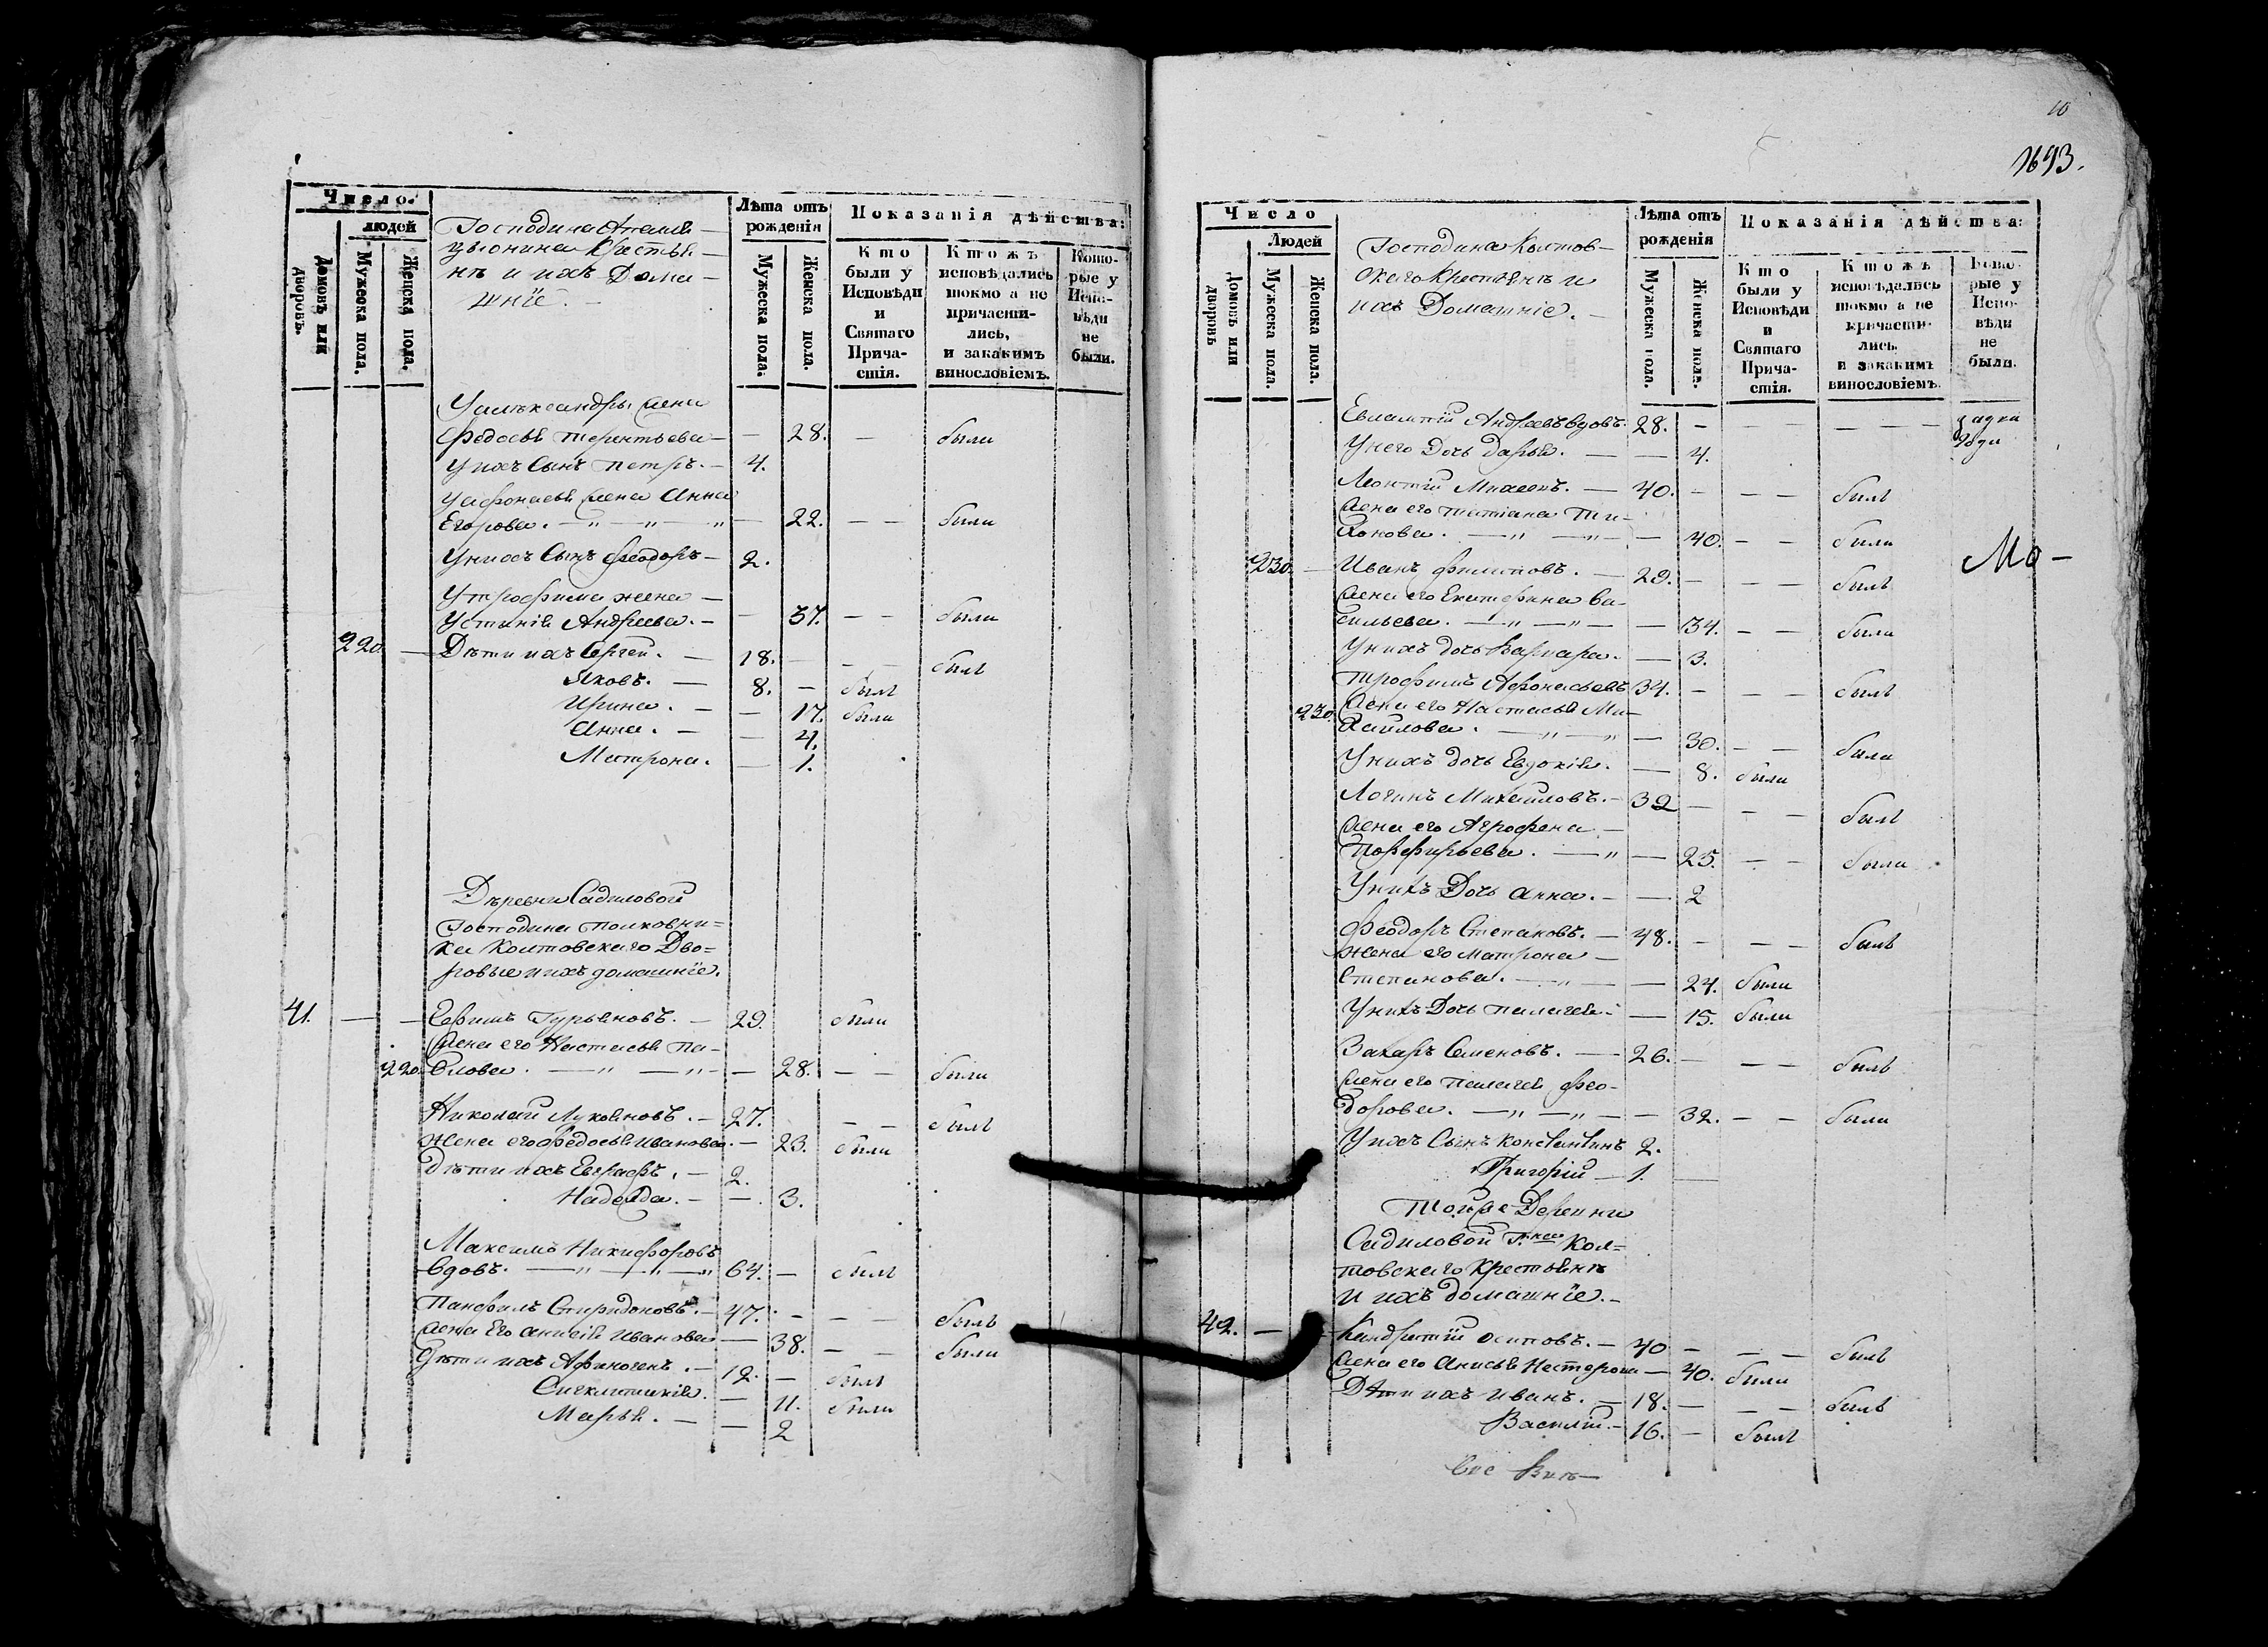 Число.
людей
Домовъ или дворовъ.
Мужеска пола.
Женска пола.
Господина
Крестья-
нъ и ихъ Дома-
шніе. -
Лѣта отъ рожденія
Мужеска пола.
Женска пола.
Показанія дѣйства:
Кто были у Исповѣди и Святаго Прича- стія.
Ктожъ исповѣдались токмо а не причасти- лись, и закакимъ винословіемъ.
Кото- рые у Испо- вѣди не были.
Уалександры жена
Федосья Терентьева — — 28. — были
У ихъ Сынъ Петръ. — 4.
Уафонасья жена Анна
Егорова. — " — " — " — 22. — — были
Унихъ Сынъ Феодоръ — 2.
Утрофима жена —
Устинія Андреева. — — 37. — — были
220. — Дѣти ихъ Сергей. — 18. — — былъ
Яковъ. — 8. — былъ
Ирина. — — 17. были
Анна. — — 4.
Матрона. — 1.
Деревни Садиловой
Господина Полковни=
ка Колтовскаго Дво=
ровые и ихъ домашніе.
41. — — Ефимъ Гурьяновъ. — 29. были
Жена его Настасья Па-
220. влова. — " — " — — 28. — — были
Николай Лукояновъ. — 27. — — былъ
Жена его Федосья Иванова. — 23. были
Дѣти ихъ Евграфъ. — 2.
Надежда. — — 3.
Максимъ Никифоровъ
вдовъ. — " — " — " 64. — былъ
Панфилъ Спиридоновъ. — 47. — — — былъ
жена Его анисія Иванова — 38. — — были
Дѣти ихъ Афиногенъ. — 12. — былъ
Сигклитикія. — 11. были
Марья. — — 2
10
1643.
Число
Людей
Домовъ или дворовъ
Мужеска пола.
Женска пола.
Господина Колтов-
скаго Крестьянъ и
ихъ Домашніе. —
Лѣта отъ рожденія
Мужеска пола.
Женска пола.
Показанія дѣйства:
Кто были у Исповѣди и Святаго Прича- стія.
Ктожъ исповѣдались токмо а не причасти- лись, и закакимъ винословіемъ.
Кото- рые у Испо- вѣди не были.
Евлампій Андреевъ вдовъ. 28. — — — — — —
Унего Дочь Дарья. — — 4.
Леонтій Михеевъ. — 40. — — — былъ
жена его Татіана Ти-
хонова. — " — " — — 40. — — были
230. — Иванъ Филиповъ. — 29. — — — былъ
Мо —
жена его Екатерина Ва-
сильева. — " — " — — 34. — — были
Унихъ дочь Варвара. — 3.
Трофимъ Афонасьевъ 34. — — — былъ
жена его Настасья Ми-
230. хайлова. — " — " — 30. — — были
Унихъ дочь Евдокія. — 8. были
Логинъ Михайловъ. — 32 — — — былъ
жена его Агрофена —
Порфирьева. — " — 25. — — были
Унихъ Дочь Анна. — — 2
Феодоръ Степановъ. — 48. — — — былъ
жена его Матрона —
Степанова. — " — — 24. были
Унихъ Дочь Пелагея — — 15. были
Захаръ Семеновъ. — 26. — — — былъ
жена его Пелагея Фео-
дорова. — " — " — — 32. — — были
У ихъ Сынъ Константинъ 2.
Григорій — 1. —
Тойже Деревни
Садиловой Г.на Кол=
товскаго Крестьянъ
и ихъ домашніе. —
42. — Кандратій Осиповъ. — 40 — — — былъ
жена его Анисья Нестерова — 40. были
Дѣти ихъ Иванъ. — 18. — — — былъ
Василій. — 16. — былъ